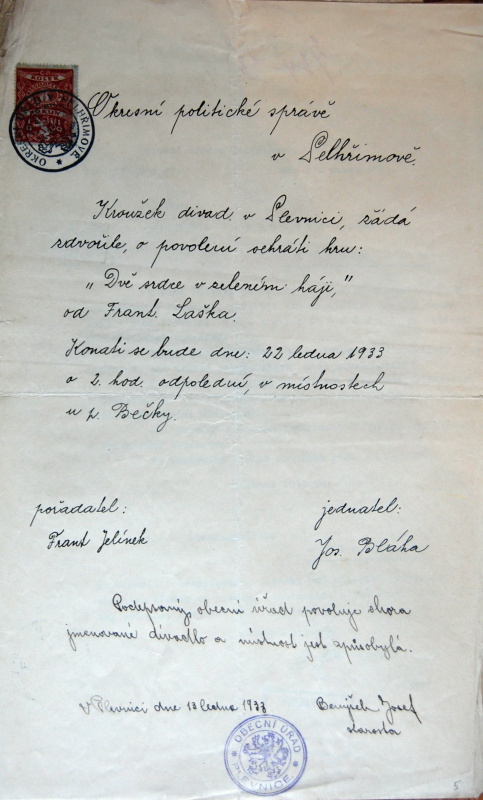 KOLEK
Okresní politické správě
v Pelhřimově.
Kroužek divad. v Plevnici, žádá
zdvořile, o povolení sehráti hru:
„Dvě srdce v zeleném háji,"
od Frant. Laška.
Konati se bude dne: 22 ledna 1933
o 2. hod. odpolední, v místnostech
u p. Bečky.
pořadatel:
Frant Jelínek
jednatel:
Jos. Bláha
Podepsaný obecní úřad povoluje shora
jmenované divadlo a místnost jest způsobylá.
V Plevnici dne 13 ledna 1933
Josef
starosta
OBECNÍ ÚŘAD
PLEVNICE
5